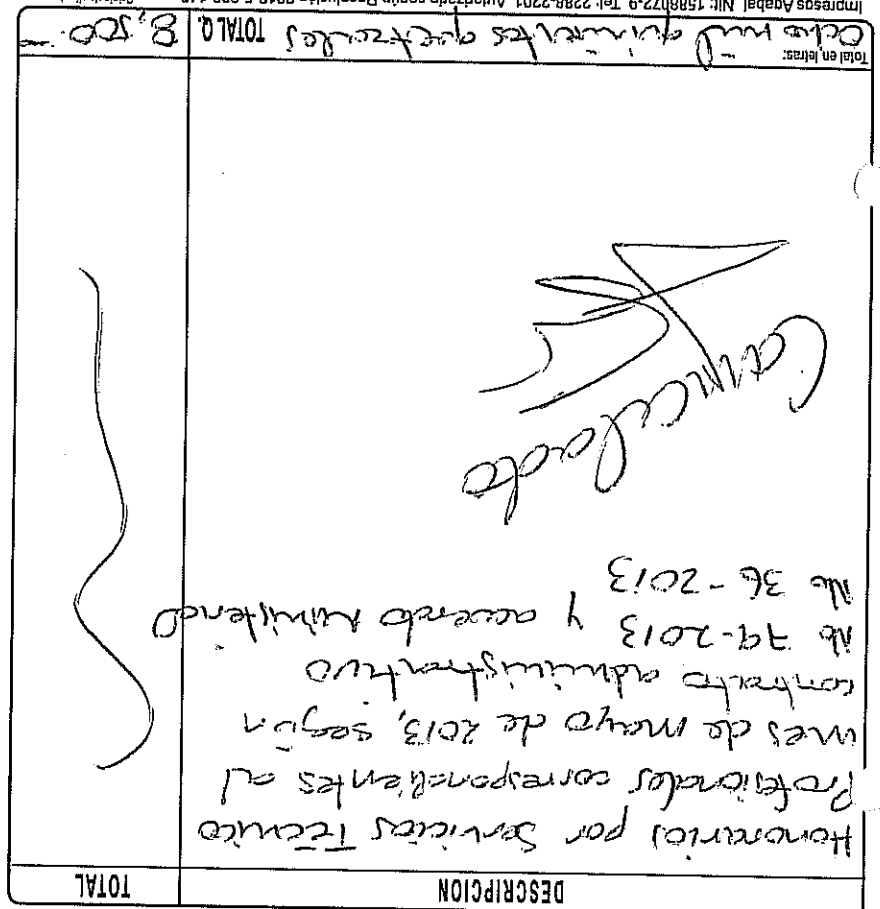 DESCRIPCION TOTAL
Honorarios por Servicios Técnico
Profesionales correspondientes al
mes de mayo de 2013, según
contrato administrativo
No 79-2013 y acuerdo ministerial
No 36-2013
Cancelado
Total en letras:
Ocho mil quinientos quetzales TOTAL Q. 8,500.-
Impresos Agabal Nit: 1588072-9 Tel: 2288-2201 Autorizado según Resolución